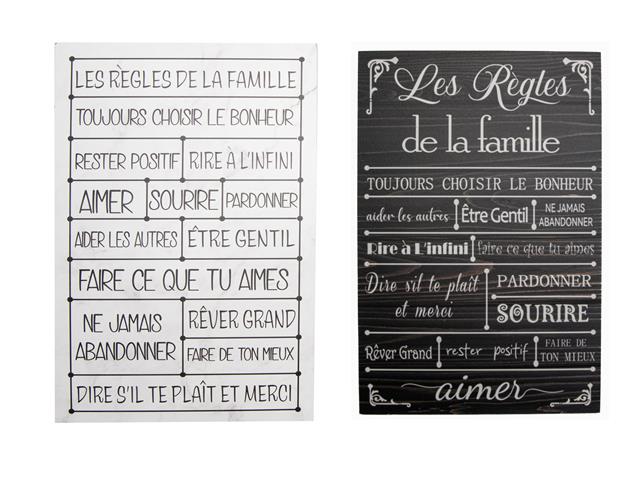 LES RÈGLES DE LA FAMILLE
TOUJOURS CHOISIR LE BONHEUR
RESTER POSITIF
RIRE À L'INFINI
AIMER
SOURIRE
PARDONNER
AIDER LES AUTRES
ÊTRE GENTIL
FAIRE CE QUE TU AIMES
NE JAMAIS
ABANDONNER
RÊVER GRAND
FAIRE DE TON MIEUX
DIRE S'IL TE PLAÎT ET MERCI
Les Règles
de la famille
TOUJOURS CHOISIR LE BONHEUR
aider les autres
Être Gentil
NE JAMAIS
ABANDONNER
Rire à L'infini
faire ce que tu aimes
Dire s'il te plaît
et merci
PARDONNER
SOURIRE
Rêver Grand
rester positif
FAIRE DE
TON MIEUX
aimer